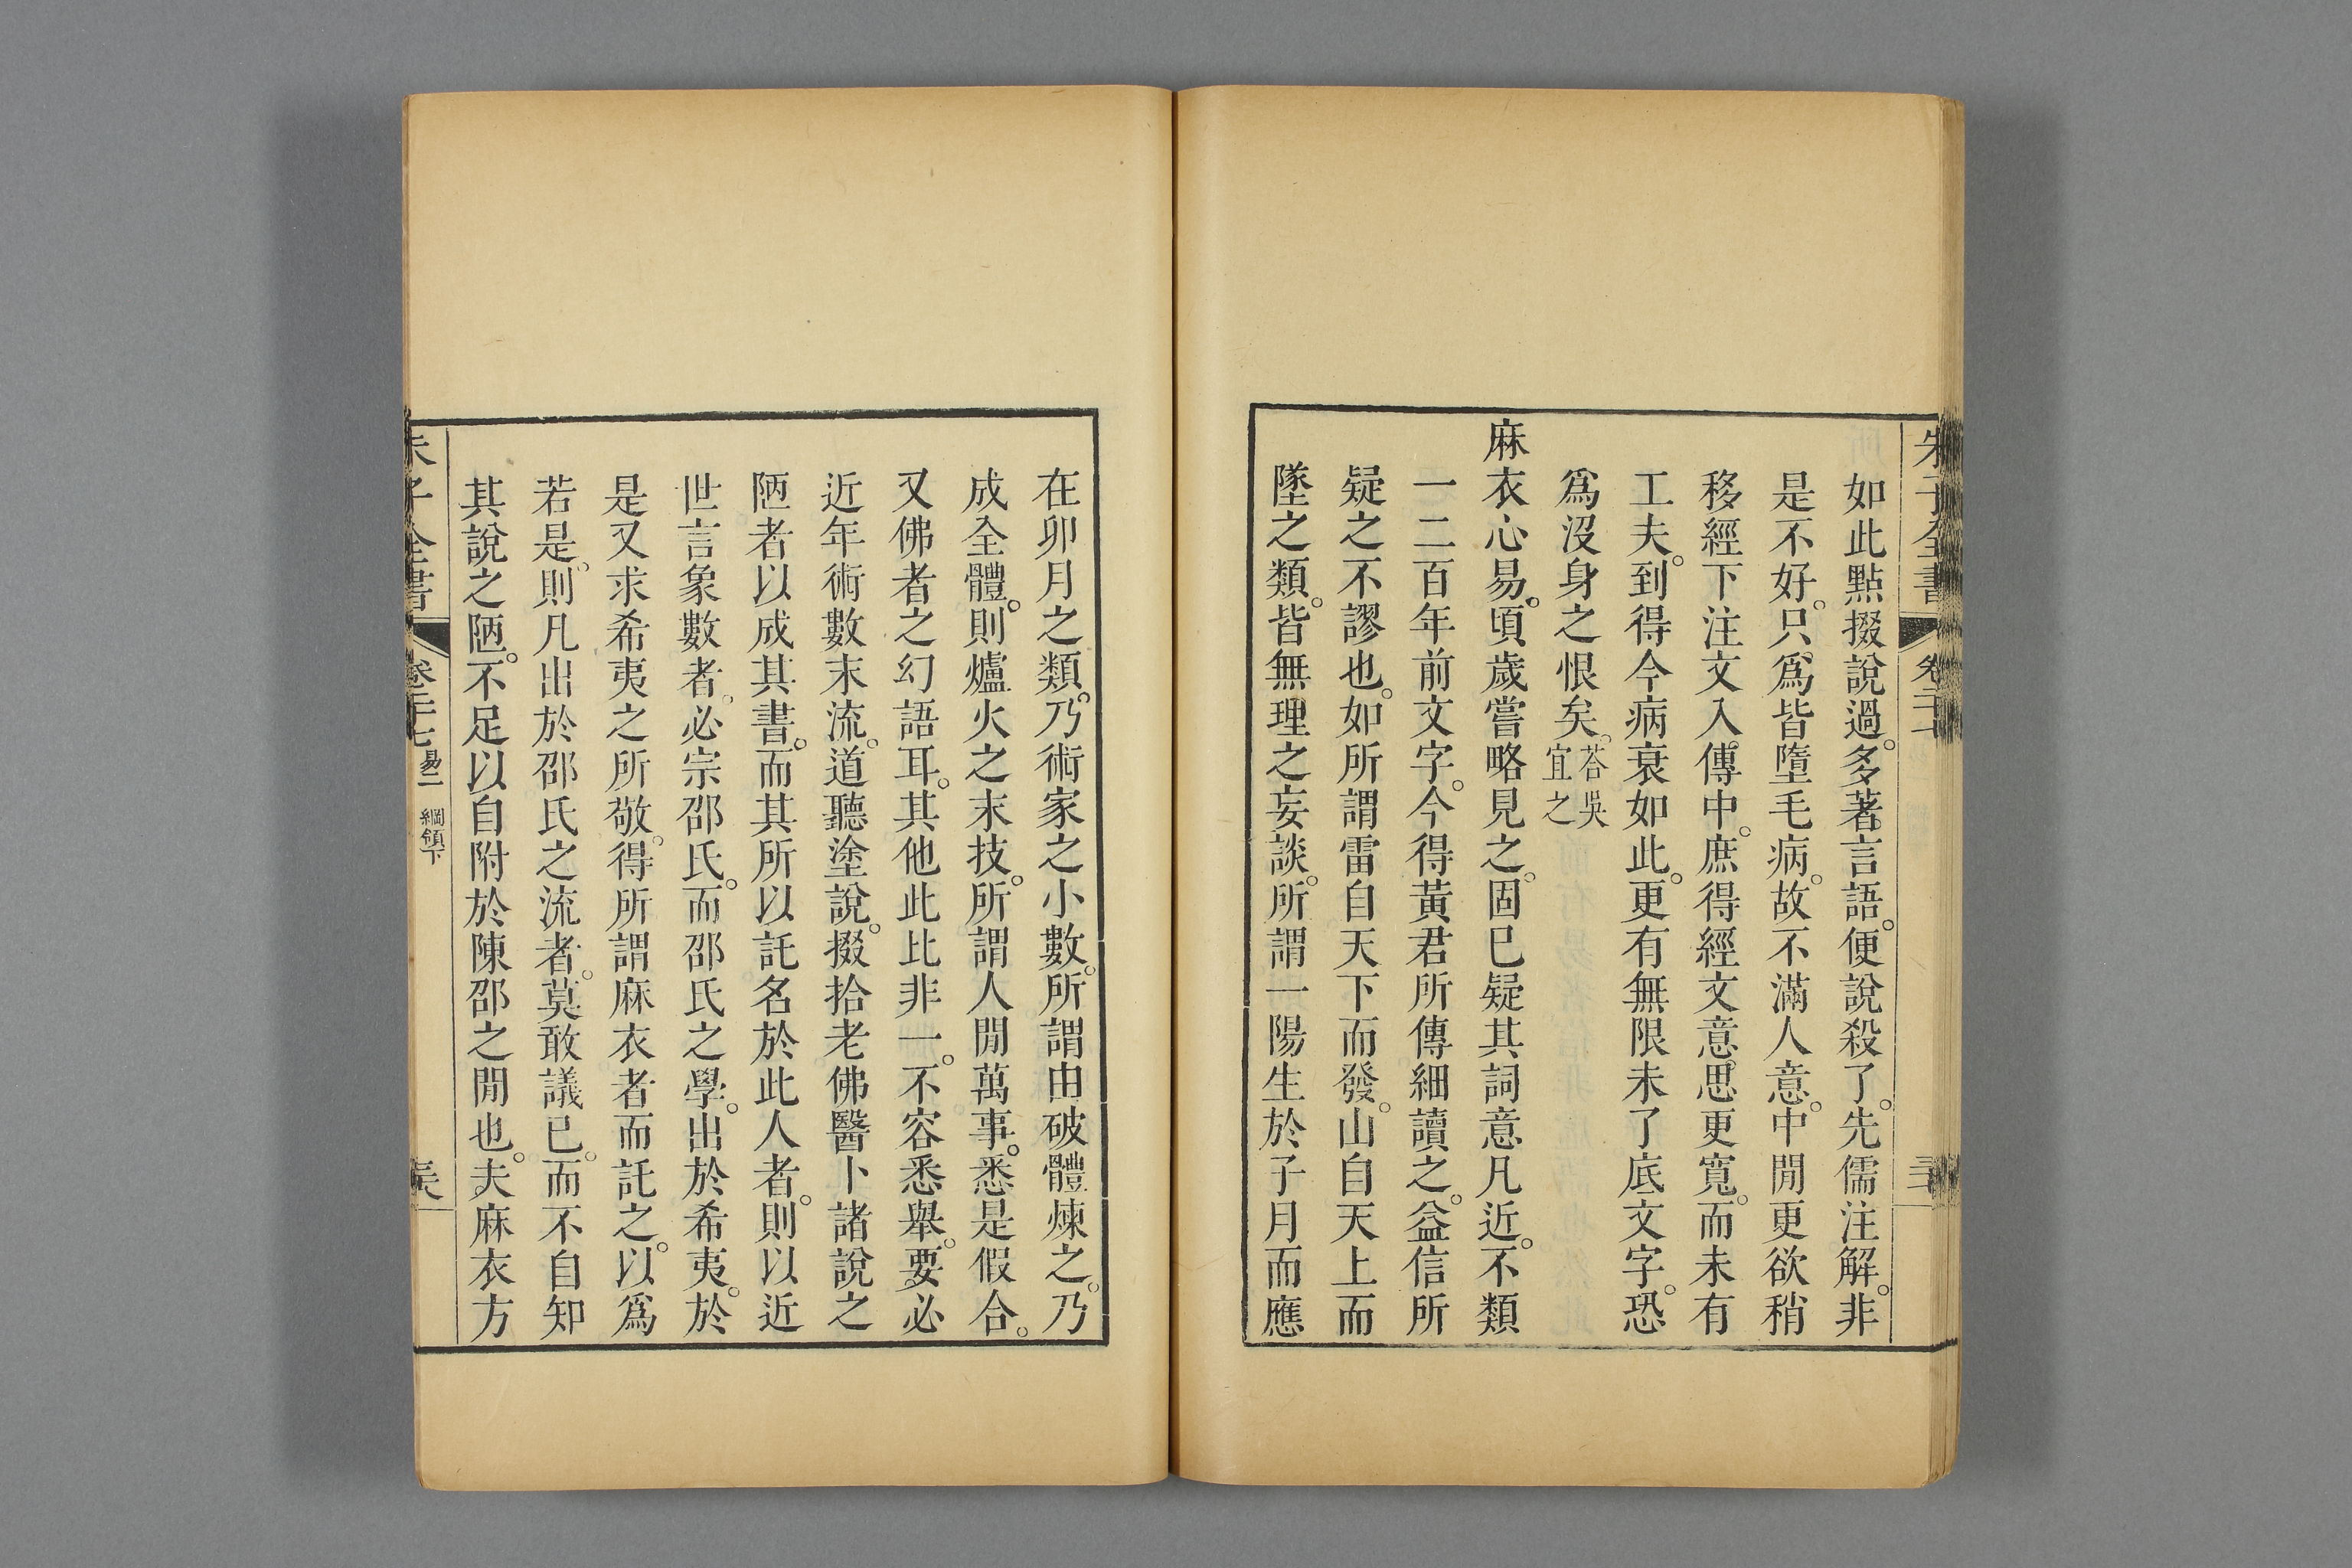 朱子全書 卷二十七
如此點掇說過。多著言語。便說殺了。先儒注解。非
是不好。只爲皆墮毛病。故不滿人意。中閒更欲稍
移經下注文入傳中。庶得經文意思更寬。而未有
工夫。到得今病衰如此。更有無限未了底文字。恐
爲沒身之恨矣。答吳宜之
麻衣心易。頃歲嘗略見之。固已疑其詞意凡近。不類
一二百年前文字。今得黃君所傳細讀之。益信所
疑之不謬也。如所謂雷自天下而發。山自天上而
墜之類。皆無理之妄談。所謂一陽生於子月而應
在卯月之類。乃術家之小數。所謂由破體煉之。乃
成全體。則爐火之末技。所謂人閒萬事。悉是假合。
又佛者之幻語耳。其他此比非一。不容悉舉。要必
近年術數末流。道聽塗說。掇拾老佛醫卜諸說之
陋者以成其書。而其所以託名於此人者。則以近
世言象數者。必宗邵氏。而邵氏之學。出於希夷。於
是又求希夷之所敬。得所謂麻衣者而託之。以爲
若是。則凡出於邵氏之流者。莫敢議已。而不自知
其說之陋。不足以自附於陳邵之閒也。夫麻衣方
朱子全書 卷二十七 易二 綱領下